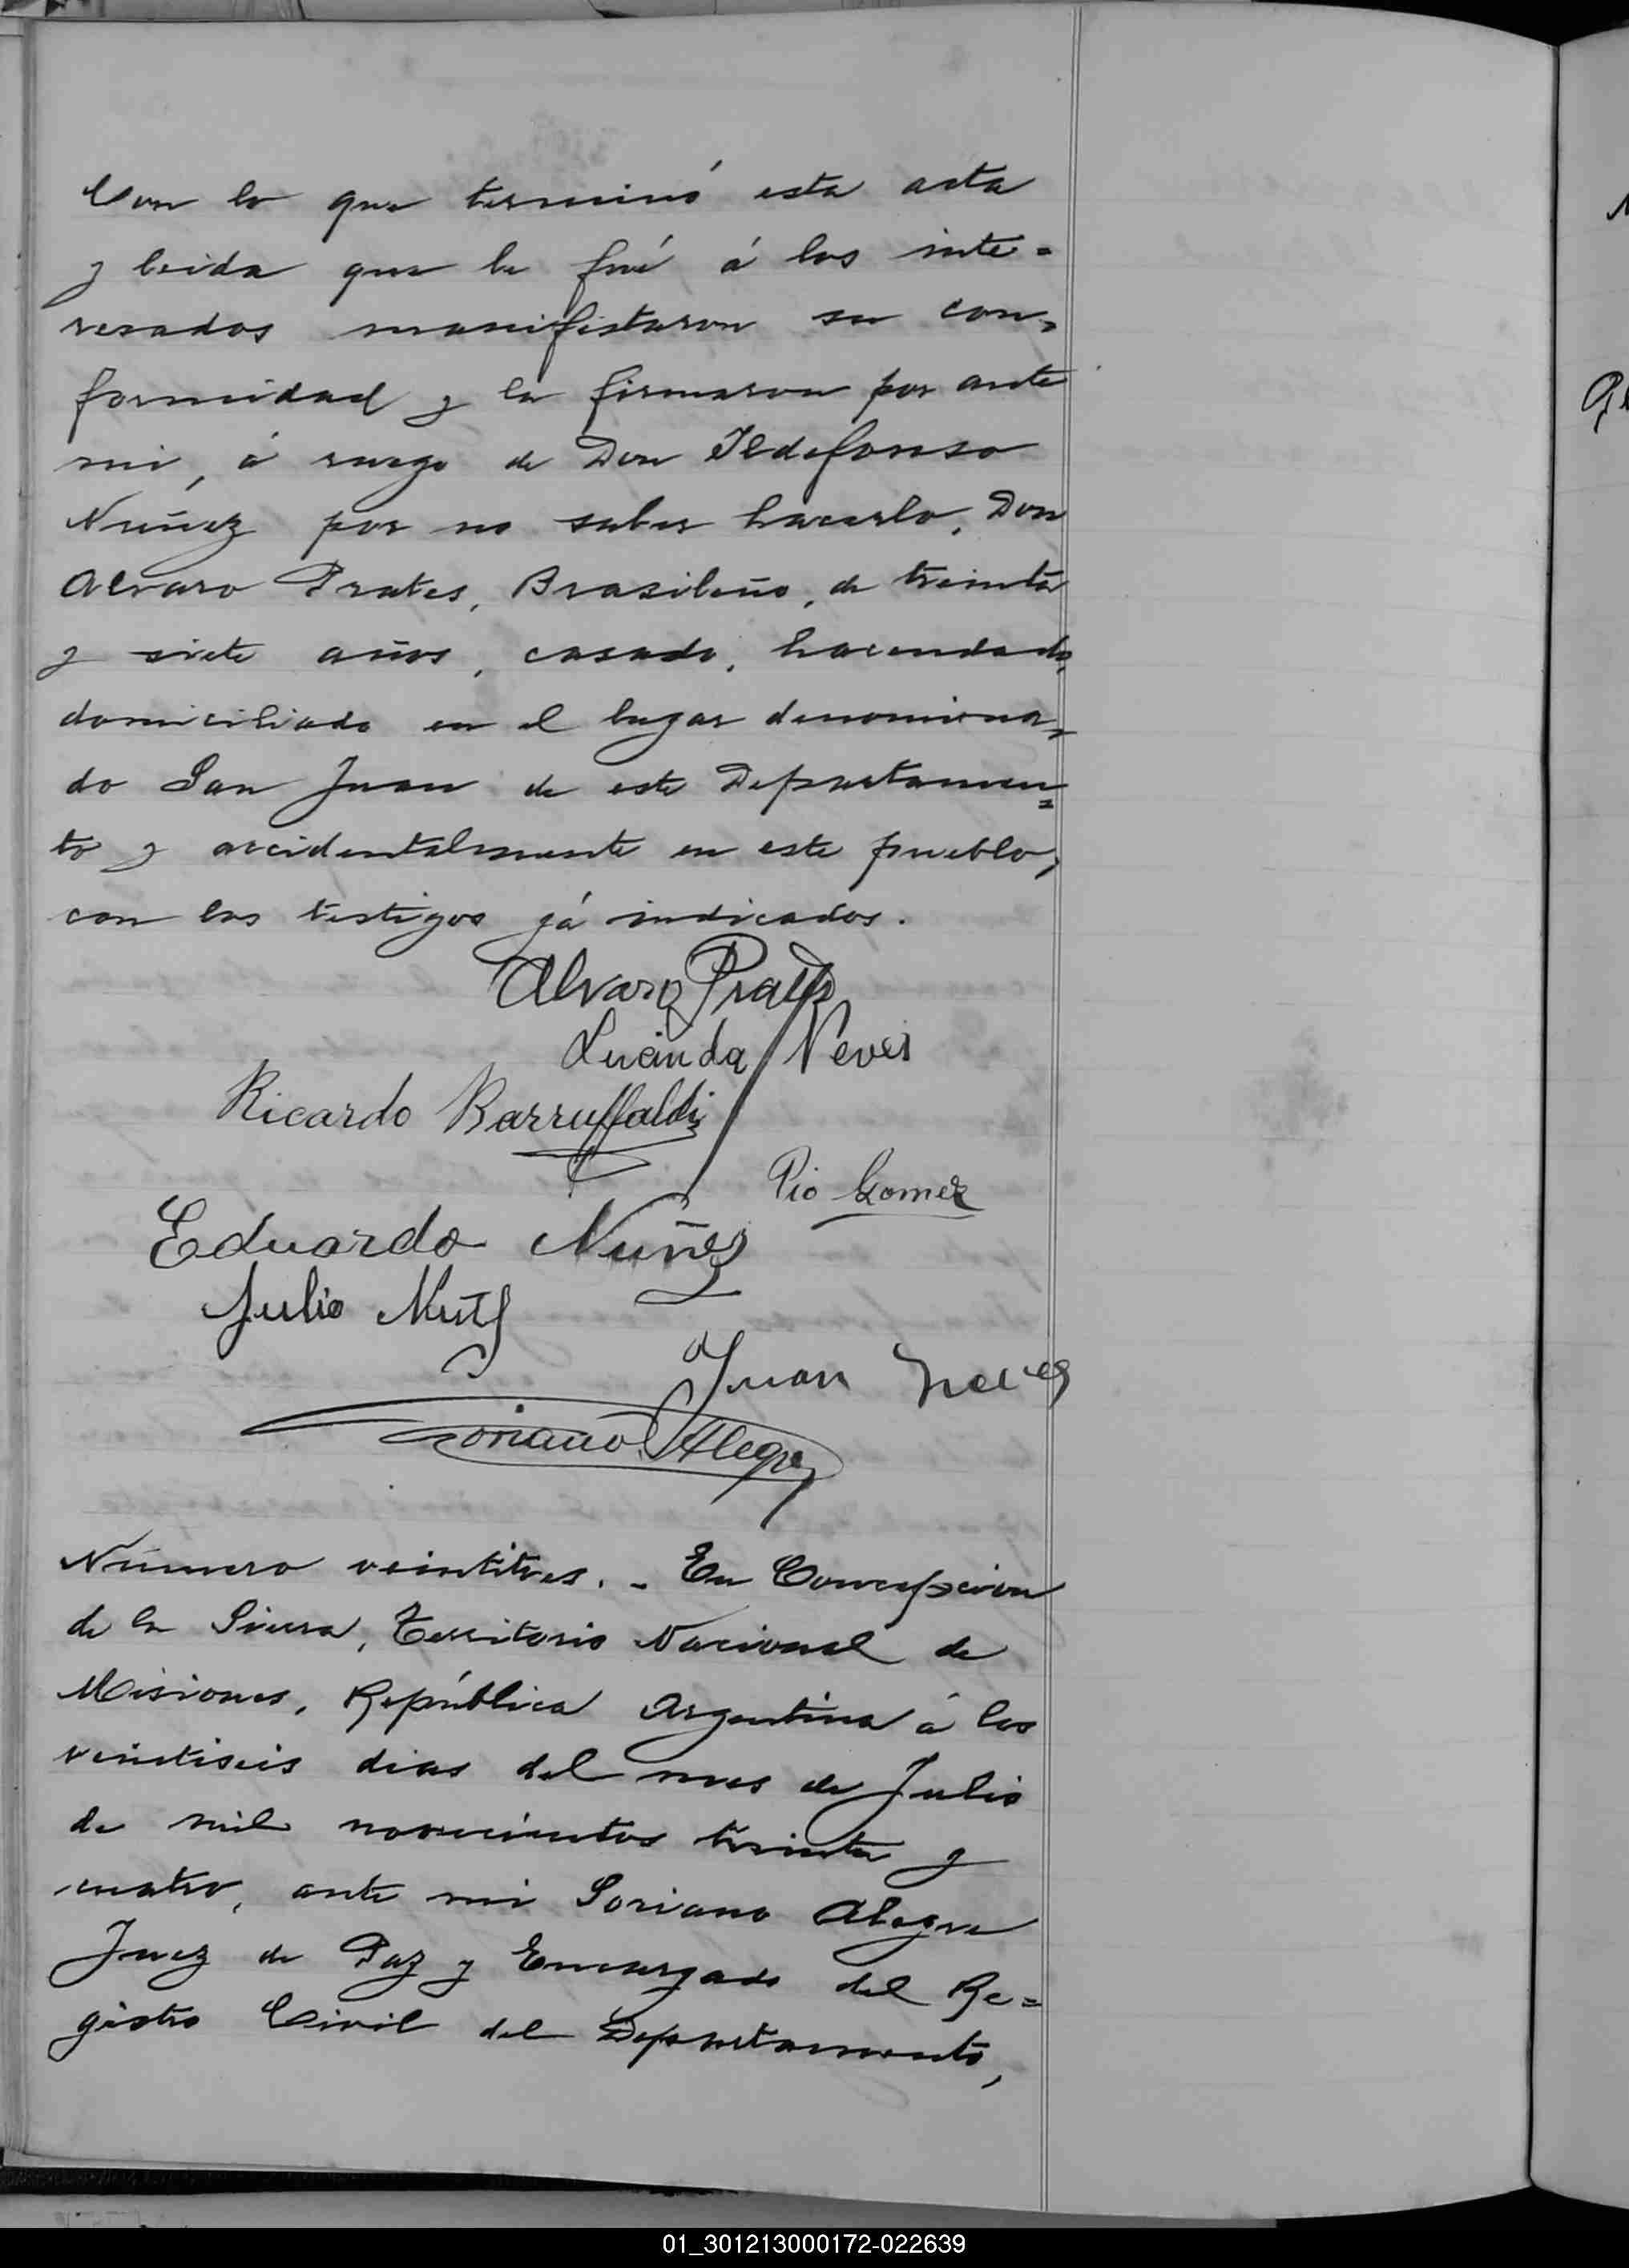 Con lo que terminó esta acta
y leida que le fué á los inte=
resados manifestaron su con=
formidad y la firmaron por ante
mi, á ruego de Don Ildefonso
Nuñez por no saber hacerlo, Don
Alvaro Prates, Brasileño, de treinta
y siete años, casado, hacendado,
domiciliado en el lugar denomina=
do San Juan de este Departamen=
to y accidentalmente en este pueblo,
con los testigos yá indicados.
Alvaro Prates
Lucinda Neves
Ricardo Barruffaldi
Pio Gomez
Eduardo Nuñez
Julio
Juan Neves
Soriano Alegre
Número veintitres. - En Concepcion
de la Sierra, Territorio Nacional de
Misiones, República Argentina á los
veintiseis dias del mes de Julio
de mil novecientos treinta y
cuatro, ante mi Soriano Alegre
Juez de Paz y Encargado del Re=
gistro Civil del Departamento,
01_301213000172-022639